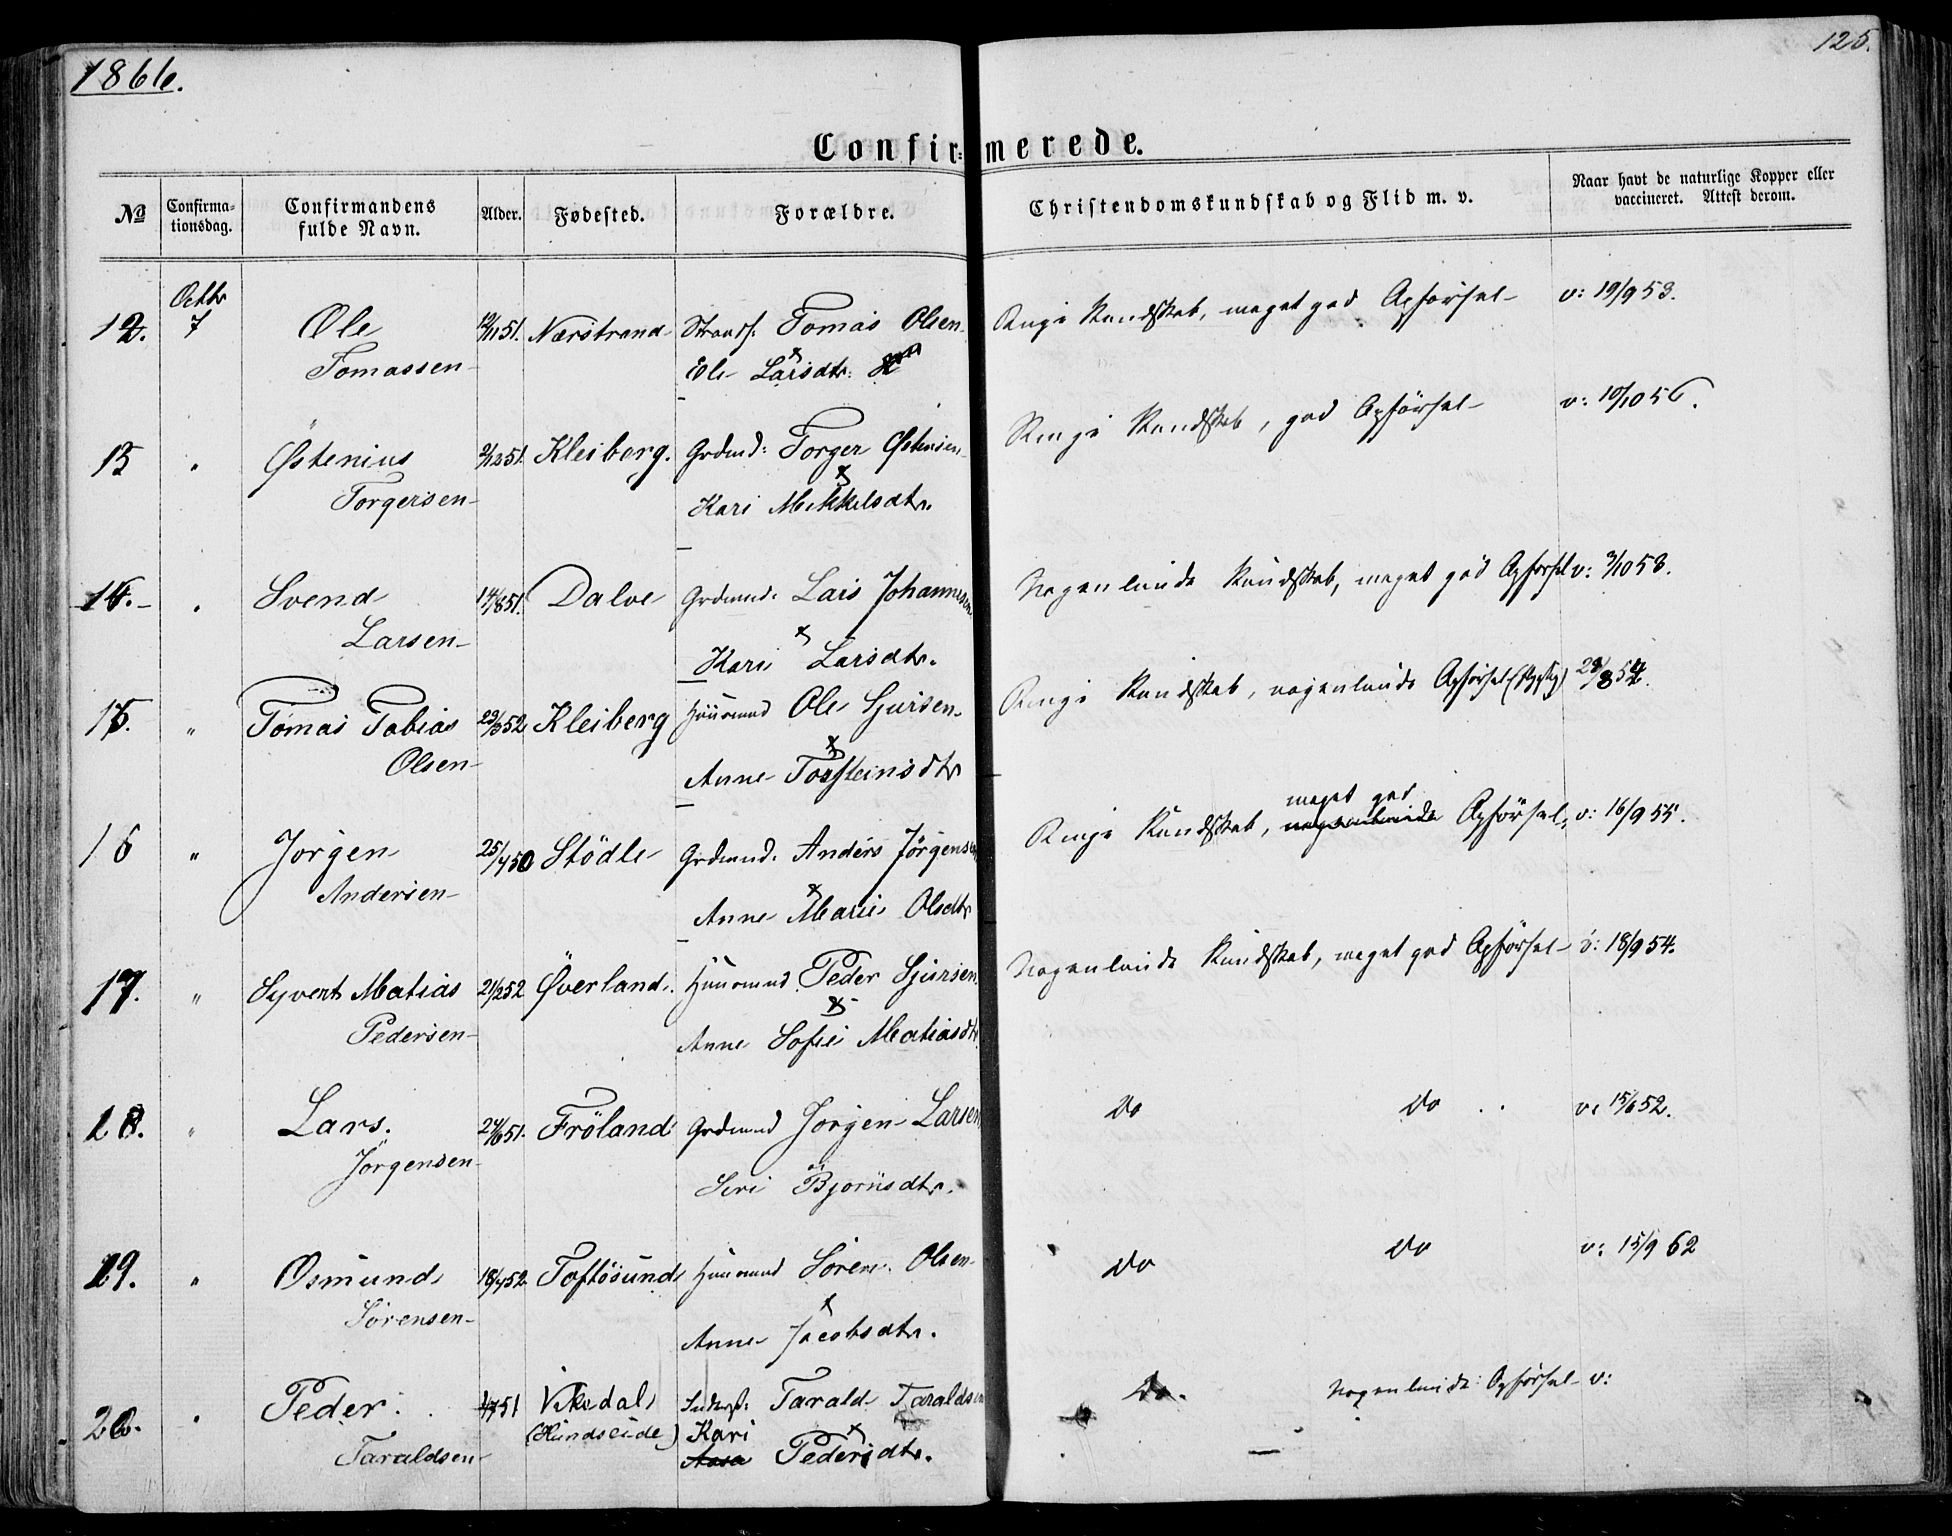 1866.
125.
Confir- merede.
No
Confirma-
tionsdag.
Confirmandens
fulde Navn.
Alder.
Fødested.
Forældre.
Christendomskundskab og Flid m. v.
Naar havt de naturlige Kopper eller
vaccineret. Attest derom.
Octbr
12. 7 Ole 51. Nærstrand Strands. Tomas Olsen Ringe Kundskab, meget god Opførsel v: 19/9 53.
Tomassen Larsdtr.
13 " Østenius 2/12 51. Kleiberg. Grdmd: Torger Østensen Ringe Kundskab, god Opførsel v: 10/10 56.
Torgersen Kari Mikkelsdtr.
14. " Svend 14/8 51. Dalve Grdmand: Lars Johannesen Nogenlunde Kundskab, meget god Opførsel v: 3/10 53.
Larsen Kari Larsdtr.
15. " Tomas Tobias 23/3 52 Kleiberg Huusmand Ole Sjursen Ringe Kundskab, nogenlunde Opførsel 29/8 54.
Olsen Anne Torsteinsdtr
meget god
16 " Jørgen 25/4 50 Stödle Grdmand. Anders Jørgensen Ringe Kundskab, nogenlunde Opførsel, v: 16/9 55.
Andersen Anne Marie Olsdtr
17. " Syvert Matias 21/2 52 Överland. Huusmand Peder Sjursen Nogenlunde Kundskab, meget god Opførsel v: 18/9 54.
Pedersen Anne Sofie Matiasdtr
18. " Lars. 24/6 51. Fröland Grdmand Jørgen Larsen Do Do v: 15/6 52.
Jørgensen Siri Bjørnsdtr.
19. " Osmund 18/4 52. Toftösund Huusmand Sören Olsen Do Do v: 15/9 62
Sörensen Anne Jacobsdtr.
20. " Peder 51 Vikedal Tarald Taraldsen Do. Nogenlunde Opførsel v:
(Hundseide) Kari
Taraldsen Aasa Pedersdtr.